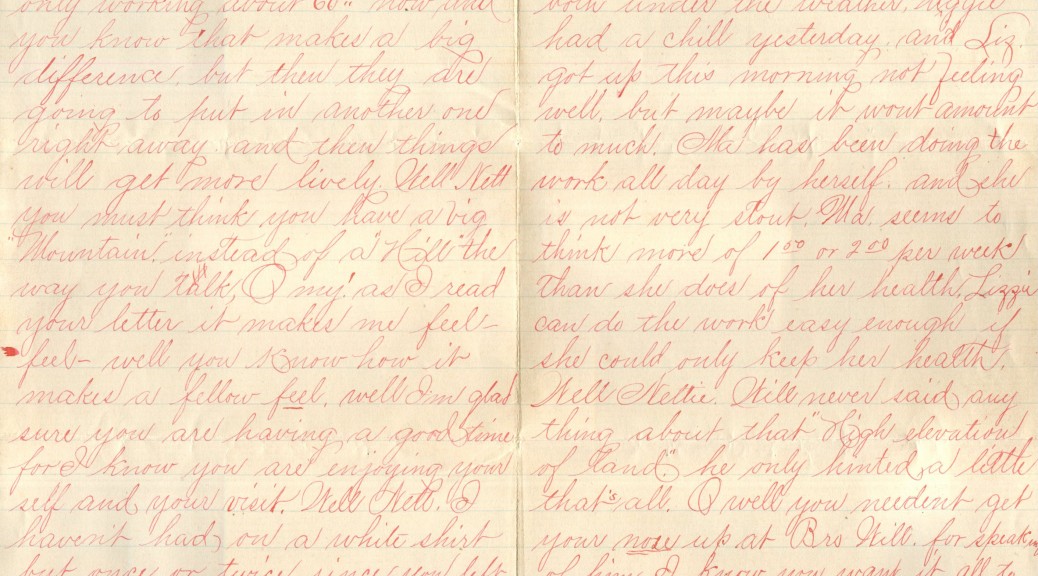 only working about 60" now and
you know that makes a big
difference, but then they are
going to put in another one
right away and then things
will get more lively. Well Nett
you must think you have a big
"Mountain" instead of a "Hill" the
way you talk, O my! as I read
your letter it makes me feel-
feel- well you know how it
makes a fellow feel. well I'm glad
sure you are having a good time
for I know you are enjoying your
self and your visit. Well Nett. I
haven't had on a white shirt
but once or twice since you left
both under the weather, Aggie
had a chill yesterday. and Liz.
got up this morning not feeling
well, but maybe it wont amount
to much. Ma has been doing the
work all day by herself. and she
is not very stout. Ma. seems to
think more of 1 00 or 2 00 per week
than she does of her health. Lizzie
can do the work easy enough if
she could only keep her health.
Well Nettie. Will never said any
thing about that "High elevation
of land" he only hinted a little
that's all. O well you needent get
your nose up at Bro Will. for speaking
of him I know you want it all to